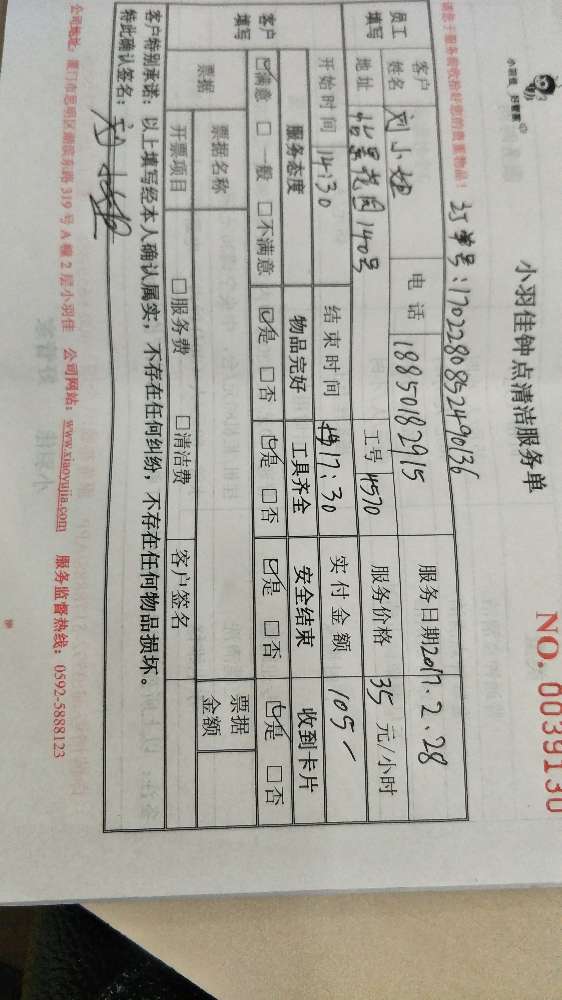 小羽佳 好管家
小羽佳钟点清洁服务单
NO. 0039130
请您于服务前收拾好您的贵重物品！
订单号:1702280852490136
员工填写
客户姓名 刘小姐 电话 18850182915 服务日期 2017.2.28
地址 怡景花园140号 工号 4570 服务价格 35 元/小时
开始时间 14:30 结束时间 17:30 实付金额 105
客户填写
服务态度 物品完好 工具齐全 安全结束 收到卡片
☑满意 □一般 □不满意 ☑是 □否 ☑是 □否 ☑是 □否 ☑是 □否
票据 票据名称 票据金额
开票项目 □服务费 □清洁费 客户签名
客户特别承诺：以上填写经本人确认属实，不存在任何纠纷，不存在任何物品损坏。
特此确认签名：刘小姐
公司地址：厦门市思明区湖滨东路319号A幢2层小羽佳 公司网站：www.xiaoyujia.com 服务监督热线：0592-5888123